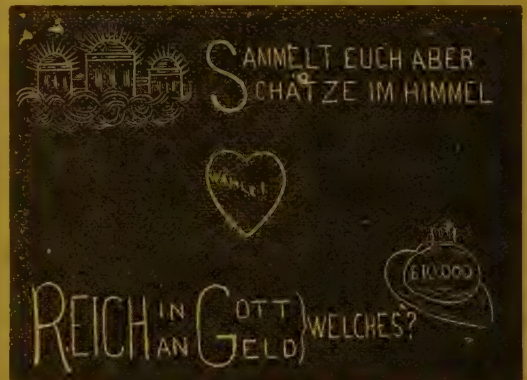 SAMMELT EUCH ABER
SCHÄTZE IM HIMMEL
£10.000
REICH IN GOTT
AN GELD
WELCHES?